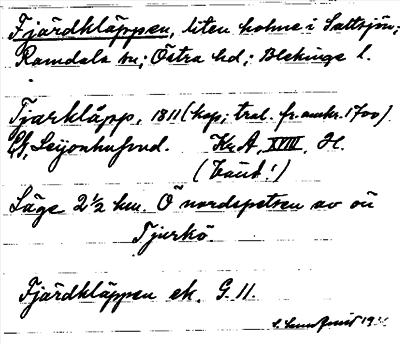 Fjärdkläppen, liten holme i Saltsjön;
Ramdala sn; Östra hd; Blekinge l.
Fjarklåpp, 1811 (kop; trol. fr. omkr. 1700)
Leijonhufvud. Kr. A, XVIII, H.
Läge 2½ km. Ö nordspetsen av ön
Tjurkö.
Fjärdkläppen ek. G. 11.